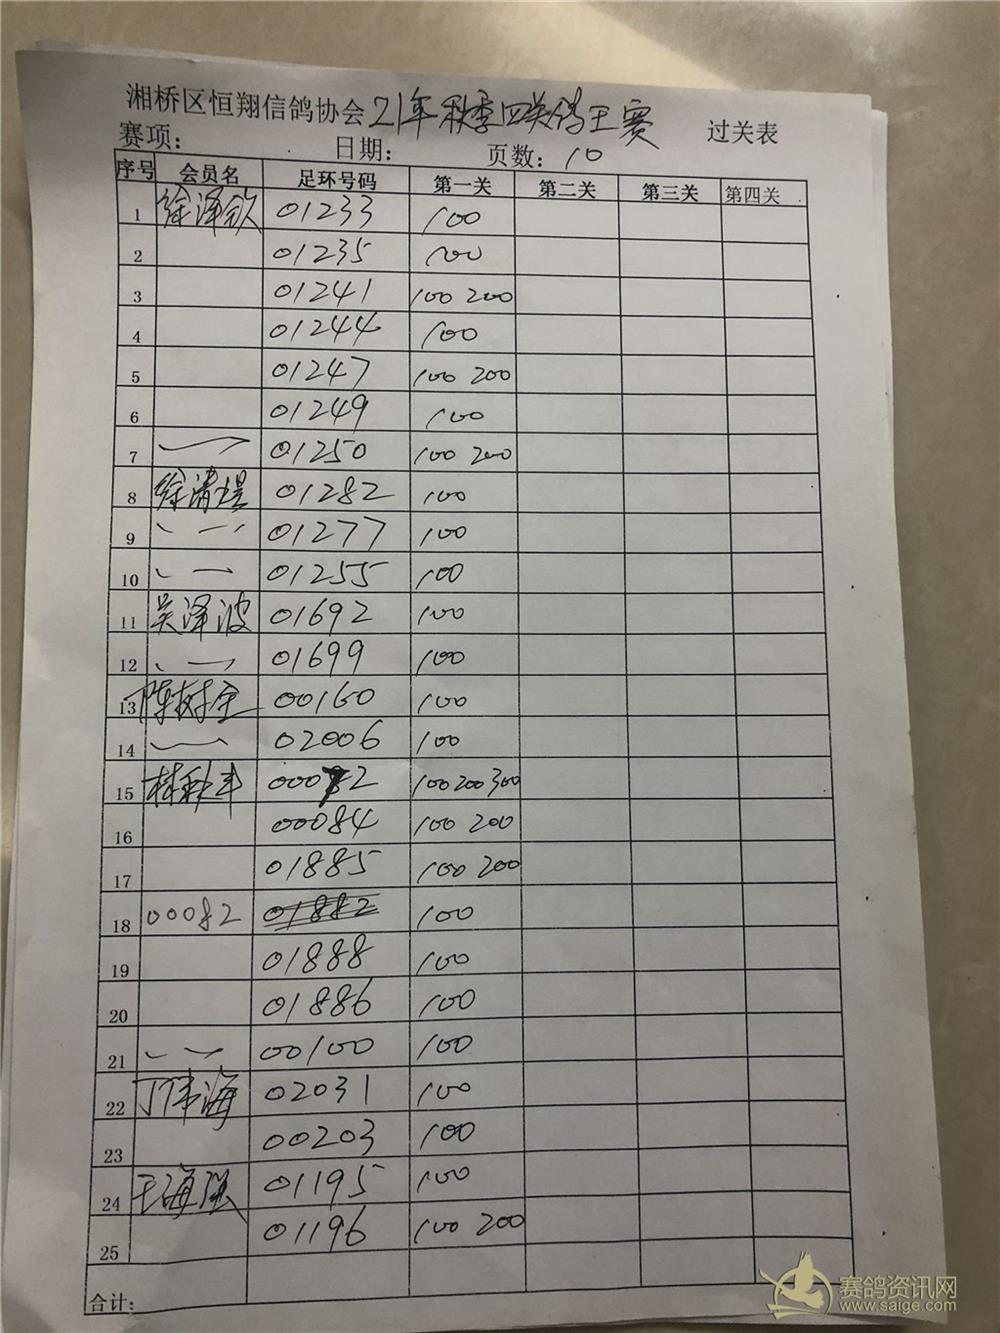 湘桥区恒翔信鸽协会21年秋季四关鸽王赛 过关表
赛项: 日期: 页数: 10
序号 会员名 足环号码 第一关 第二关 第三关 第四关
1 徐泽钦 01233 100
2 01235 100
3 01241 100 200
4 01244 100
5 01247 100 200
6 01249 100
7 01250 100 200
8 徐清煜 01282 100
9 01277 100
10 01255 100
11 吴泽波 01692 100
12 01699 100
13 陈树全 00160 100
14 02006 100
15 林秋丰 00072 100 200 300
16 00084 100 200
17 01885 100 200
18 00082 01882 100
19 01888 100
20 01886 100
21 00100 100
22 丁伟海 02031 100
23 00203 100
24 王海强 01195 100
25 01196 100 200
合计:
赛鸽资讯网
www.saige.com